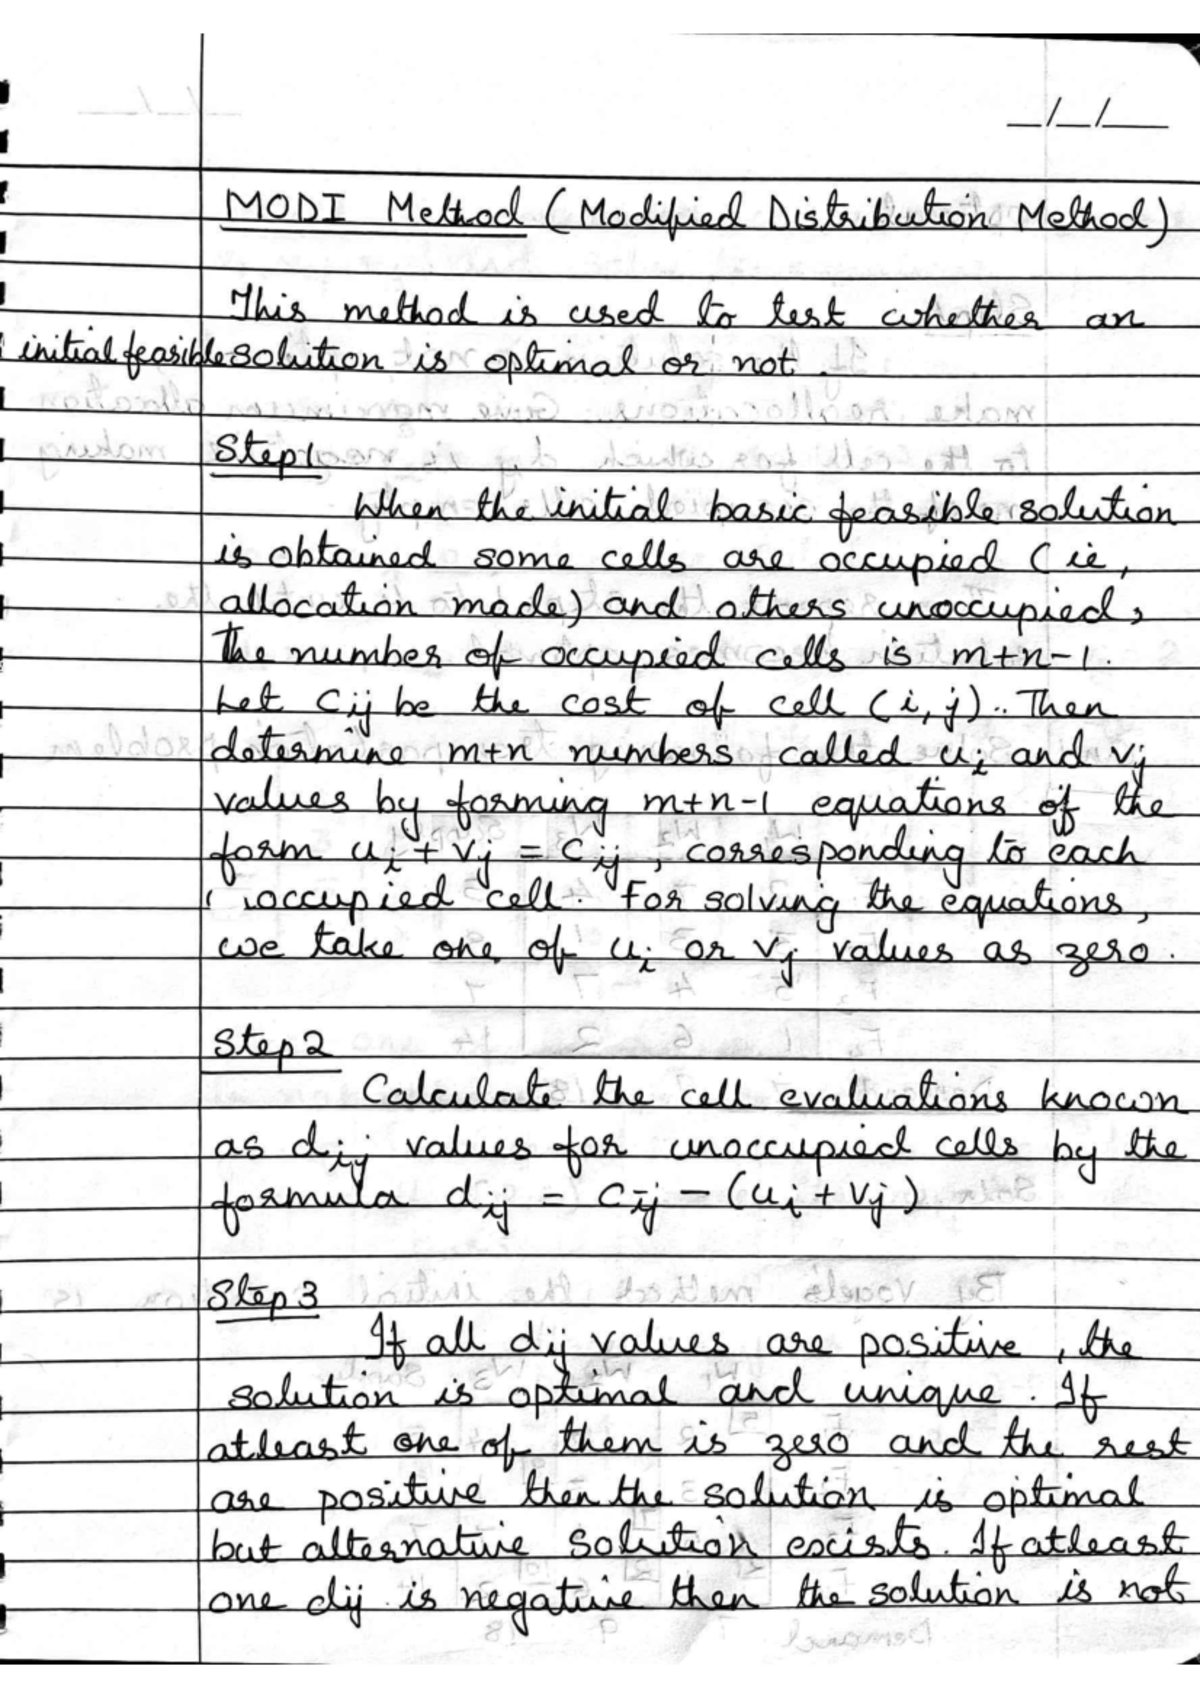 _/_/_
MODI Method (Modified Distribution Method)
This method is used to test whether an
initial feasible solution is optimal or not.
Step 1
When the initial basic feasible solution
is obtained some cells are occupied (ie,
allocation made) and others unoccupied,
The number of occupied cells is m+n-1.
Let Cij be the cost of cell (i,j).. Then
determine m+n numbers called ui and vj
values by forming m+n-1 equations of the
form ui + vj = cij, corresponding to each
occupied cell. For solving the equations,
we take one of ui or vj values as zero.
Step 2
Calculate the cell evaluations known
as dij values for unoccupied cells by the
formula dij = cij - (ui + vj)
Step 3
If all dij values are positive, the
solution is optimal and unique. If
atleast one of them is zero and the rest
are positive then the solution is optimal
but alternative solution excists. If atleast
one dij is negative then the solution is not